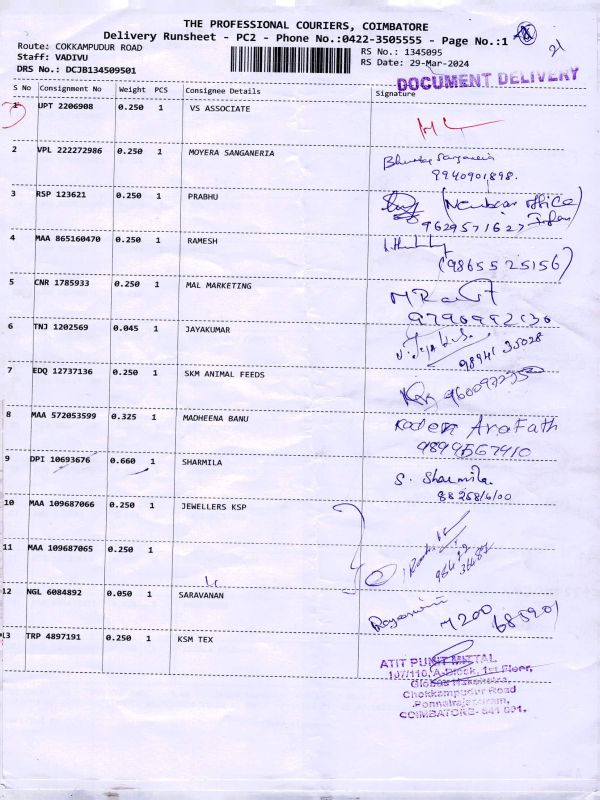 THE PROFESSIONAL COURIERS, COIMBATORE
Delivery Runsheet - PC2 - Phone No.:0422-3505555 - Page No.:1
21
Route: COKKAMPUDUR ROAD
RS No.: 1345095
Staff: VADIVU
RS Date: 29-Mar-2024
DRS No.: DCJB134509501
DOCUMENT DELIVERY
S No Consignment No Weight PCS Consignee Details Signature
1 UPT 2206908 0.250 1 VS ASSOCIATE
2 VPL 222272986 0.250 1 MOYERA SANGANERIA
9940901898.
3 RSP 123621 0.250 1 PRABHU
office
9629571627
4 MAA 865160470 0.250 1 RAMESH
(9865525156)
5 CNR 1785933 0.250 1 MAL MARKETING
6 TNJ 1202569 0.045 1 JAYAKUMAR
98941 35028
7 EDQ 12737136 0.250 1 SKM ANIMAL FEEDS
8 MAA 572053599 0.325 1 MADHEENA BANU
Kader Arafath
9899567910
9 DPI 10693676 0.660 1 SHARMILA
S. Sharmila.
10 MAA 109687066 0.250 1 JEWELLERS KSP
11 MAA 109687065 0.250 1
12 NGL 6084892 0.050 1 SARAVANAN
13 TRP 4897191 0.250 1 KSM TEX
ATIT PUNIT MITTAL
107/110, A-Block, 1st Floor,
Chokkampudur Road
Ponnairajapuram,
COIMBATORE- 641 001.